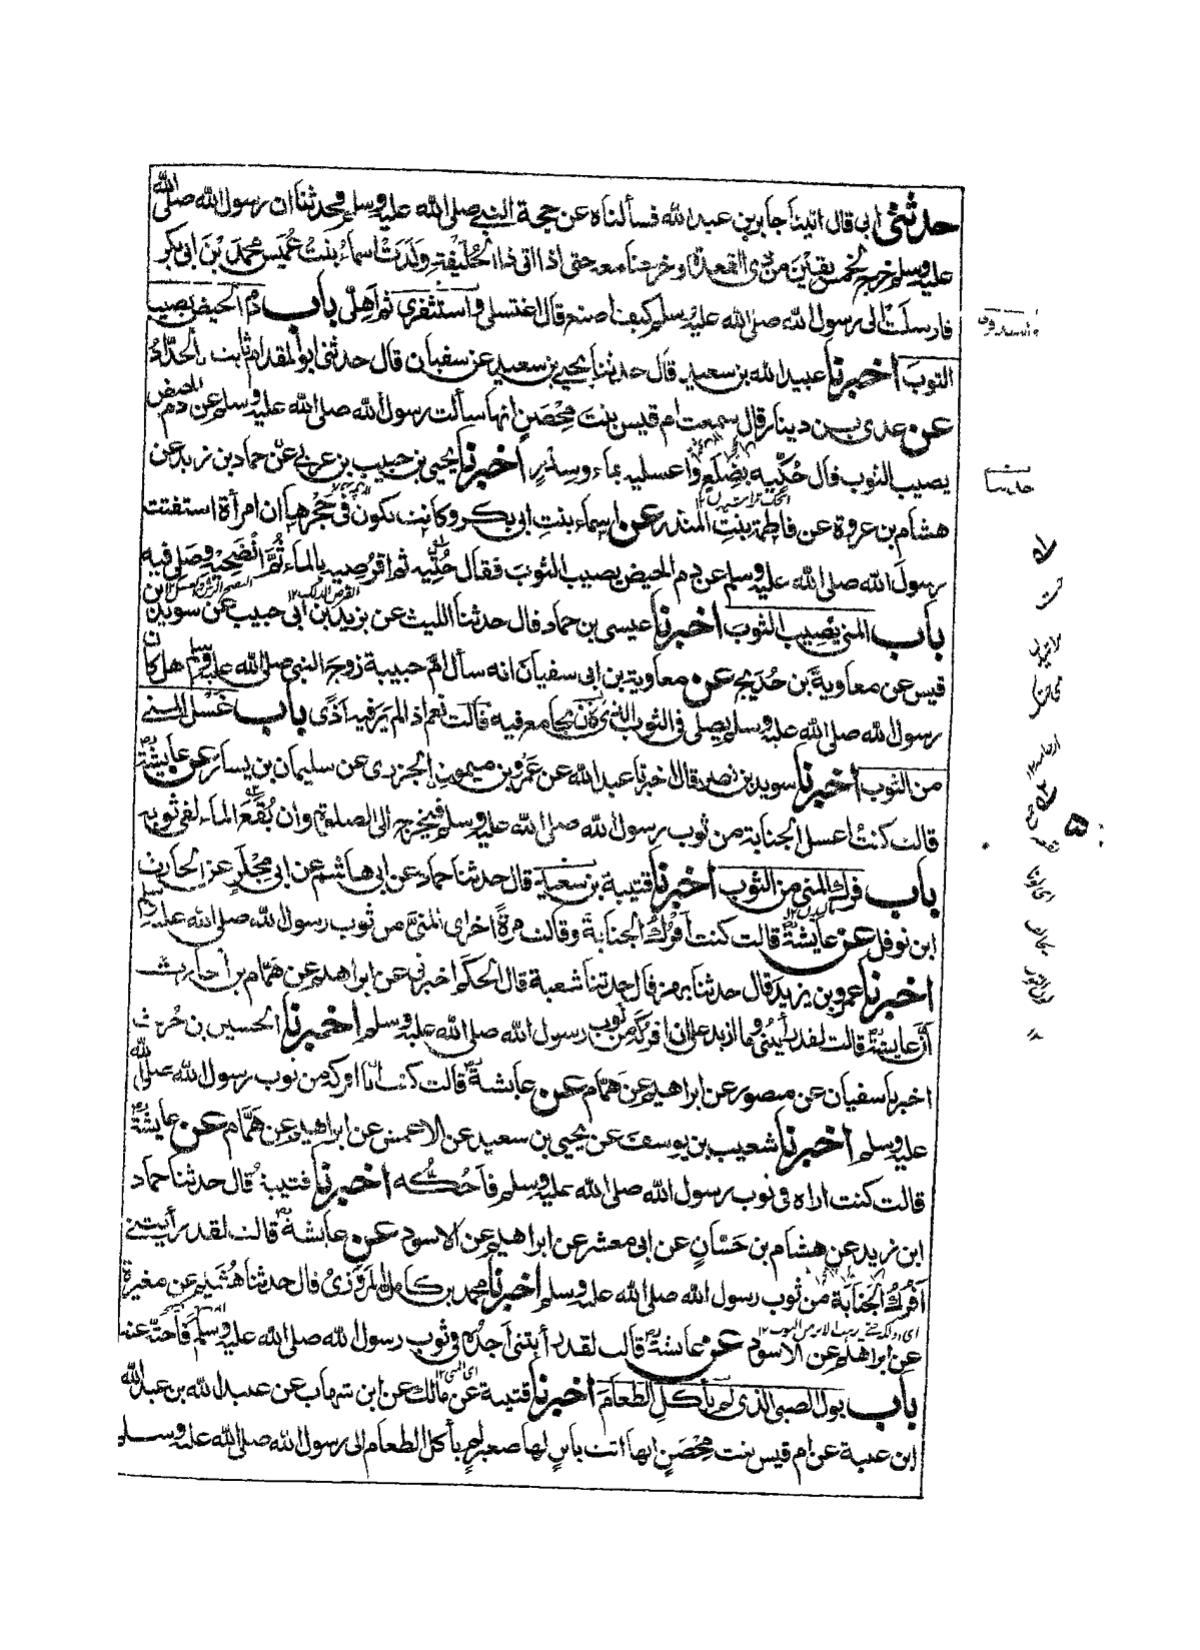 حدثنى ابى قال اتينا جابر بن عبد الله فسألناه عن حجة النبى صلى الله عليه وسلم فحدثنا ان رسول الله صلى الله
عليه وسلم خرج لخمس بقين من ذى القعدة وخرجنا معه حتى اذا اتى ذا الحليفة وَلَدَتْ اسماءُ بنتُ عُمَيس محمدَ بْنَ ابى بكر
فارسلتْ الى رسول الله صلى الله عليه وسلم كيف اصنع قال اغتسلى واستثفرى ثم اهلّى باب دم الحيض يصيب
الثوبَ اخبرنا عبيد الله بن سعيد قال حدثنا يحيى بن سعيد عن سفيان قال حدثنى ابو المقدام ثابت الحدّادُ
عن عدى بن دينار قال سمعت ام قيس بنت مِحْصَنٍ انها سألت رسول الله صلى الله عليه وسلم عن دم الحيض
يصيب الثوب قال حُكِّيه بِضِلَعٍ واغسليه بماء وسدر اخبرنا يحيى بن حبيب بن عربى عن حماد بن زيد عن
هشام بن عروة عن فاطمة بنتِ المنذر عن اسماء بنتِ ابى بكر وكانت تكون فى حَجْرها ان امرأة استفتت
رسولَ الله صلى الله عليه وسلم عن دم الحيض يصيب الثوبَ فقال حُتِّيه ثم اقرُصيه بالماء ثُمَّ انْضَحِيْه وصلى فيه
باب المنى يُصيب الثوبَ اخبرنا عيسى بن حماد قال حدثنا الليث عن يزيد بن ابى حبيب عن سويد ابن
قيس عن معاوية بن حُدَيج عن معاوية بن ابى سفيان انه سأل امَّ حبيبة زوجَ النبى صلى الله عليه وسلم هل كان
رسول الله صلى الله عليه وسلم يصلى فى الثوب الذى كان يجامع فيه قالت نعم اذا لم ير فيه اَذًى باب غَسْل المنى
من الثوب اخبرنا سويد بن نصر قال اخبرنا عبد الله عن عمرو بن ميمون الجزرى عن سليمان بن يسار عن عايشة
قالت كنتُ اغسل الجنابة من ثوب رسول الله صلى الله عليه وسلم فيخرج الى الصلوة وان بُقَعَ الماء لفى ثوبه
باب فرك المنى من الثوب اخبرنا قتيبة بن سعيد قال حدثنا حماد عن ابى هاشم عن ابى مِجْلَزٍ عن الحارث
ابن نوفل عن عايشة قالت كنت اَفْرُكُ الجنابةَ وقالت مرةً اخرى المنىَّ من ثوب رسول الله صلى الله عليه وسلم
اخبرنا عمرو بن يزيد قال حدثنا بهز قال حدثنا شعبة قال الحكم اخبرنى عن ابراهيم عن همّام بن الحارث
اَنَّ عايشةَ قالت لقد رأيتُنى وما ازيد على ان افركه من ثوب رسول الله صلى الله عليه وسلم اخبرنا الحسين بن حُريث
اخبرنا سفيان عن منصور عن ابراهيم عن هَمَّام عن عايشة قالت كنت انا افركه من ثوب رسول الله صلى الله
عليه وسلم اخبرنا شعيب بن يوسف عن يحيى بن سعيد عن الاعمش عن ابراهيم عن هَمَّام عن عايشة
قالت كنت اراه فى ثوب رسول الله صلى الله عليه وسلم فَاَحُكُّه اخبرنا قتيبةُ قال حدثنا حماد
ابن زيد عن هشام بن حَسّانٍ عن ابى معشر عن ابراهيم عن الاسود عن عايشة قالت لقد رأيتنى
اَفْرُكُ الجَنَابَةَ من ثوب رسول الله صلى الله عليه وسلم اخبرنا محمد بن كامل المَرْوَزىُّ قال حدثنا هُشَيم عن مغيرة
عن ابراهيم عن الاسود عن عايشة قالت لقد رأيتنى اَجِدُه فى ثوب رسول الله صلى الله عليه وسلم فَاَحتُّه عنه
باب بول الصبى الذى لم يأكل الطعامَ اخبرنا قتيبة عن مالك عن ابن شهاب عن عبيد الله بن عبد الله
ابن عتبة عن ام قيس بنت مِحْصَنٍ انها اتت بابنٍ لها صغير لم يأكل الطعام الى رسول الله صلى الله عليه وسلم